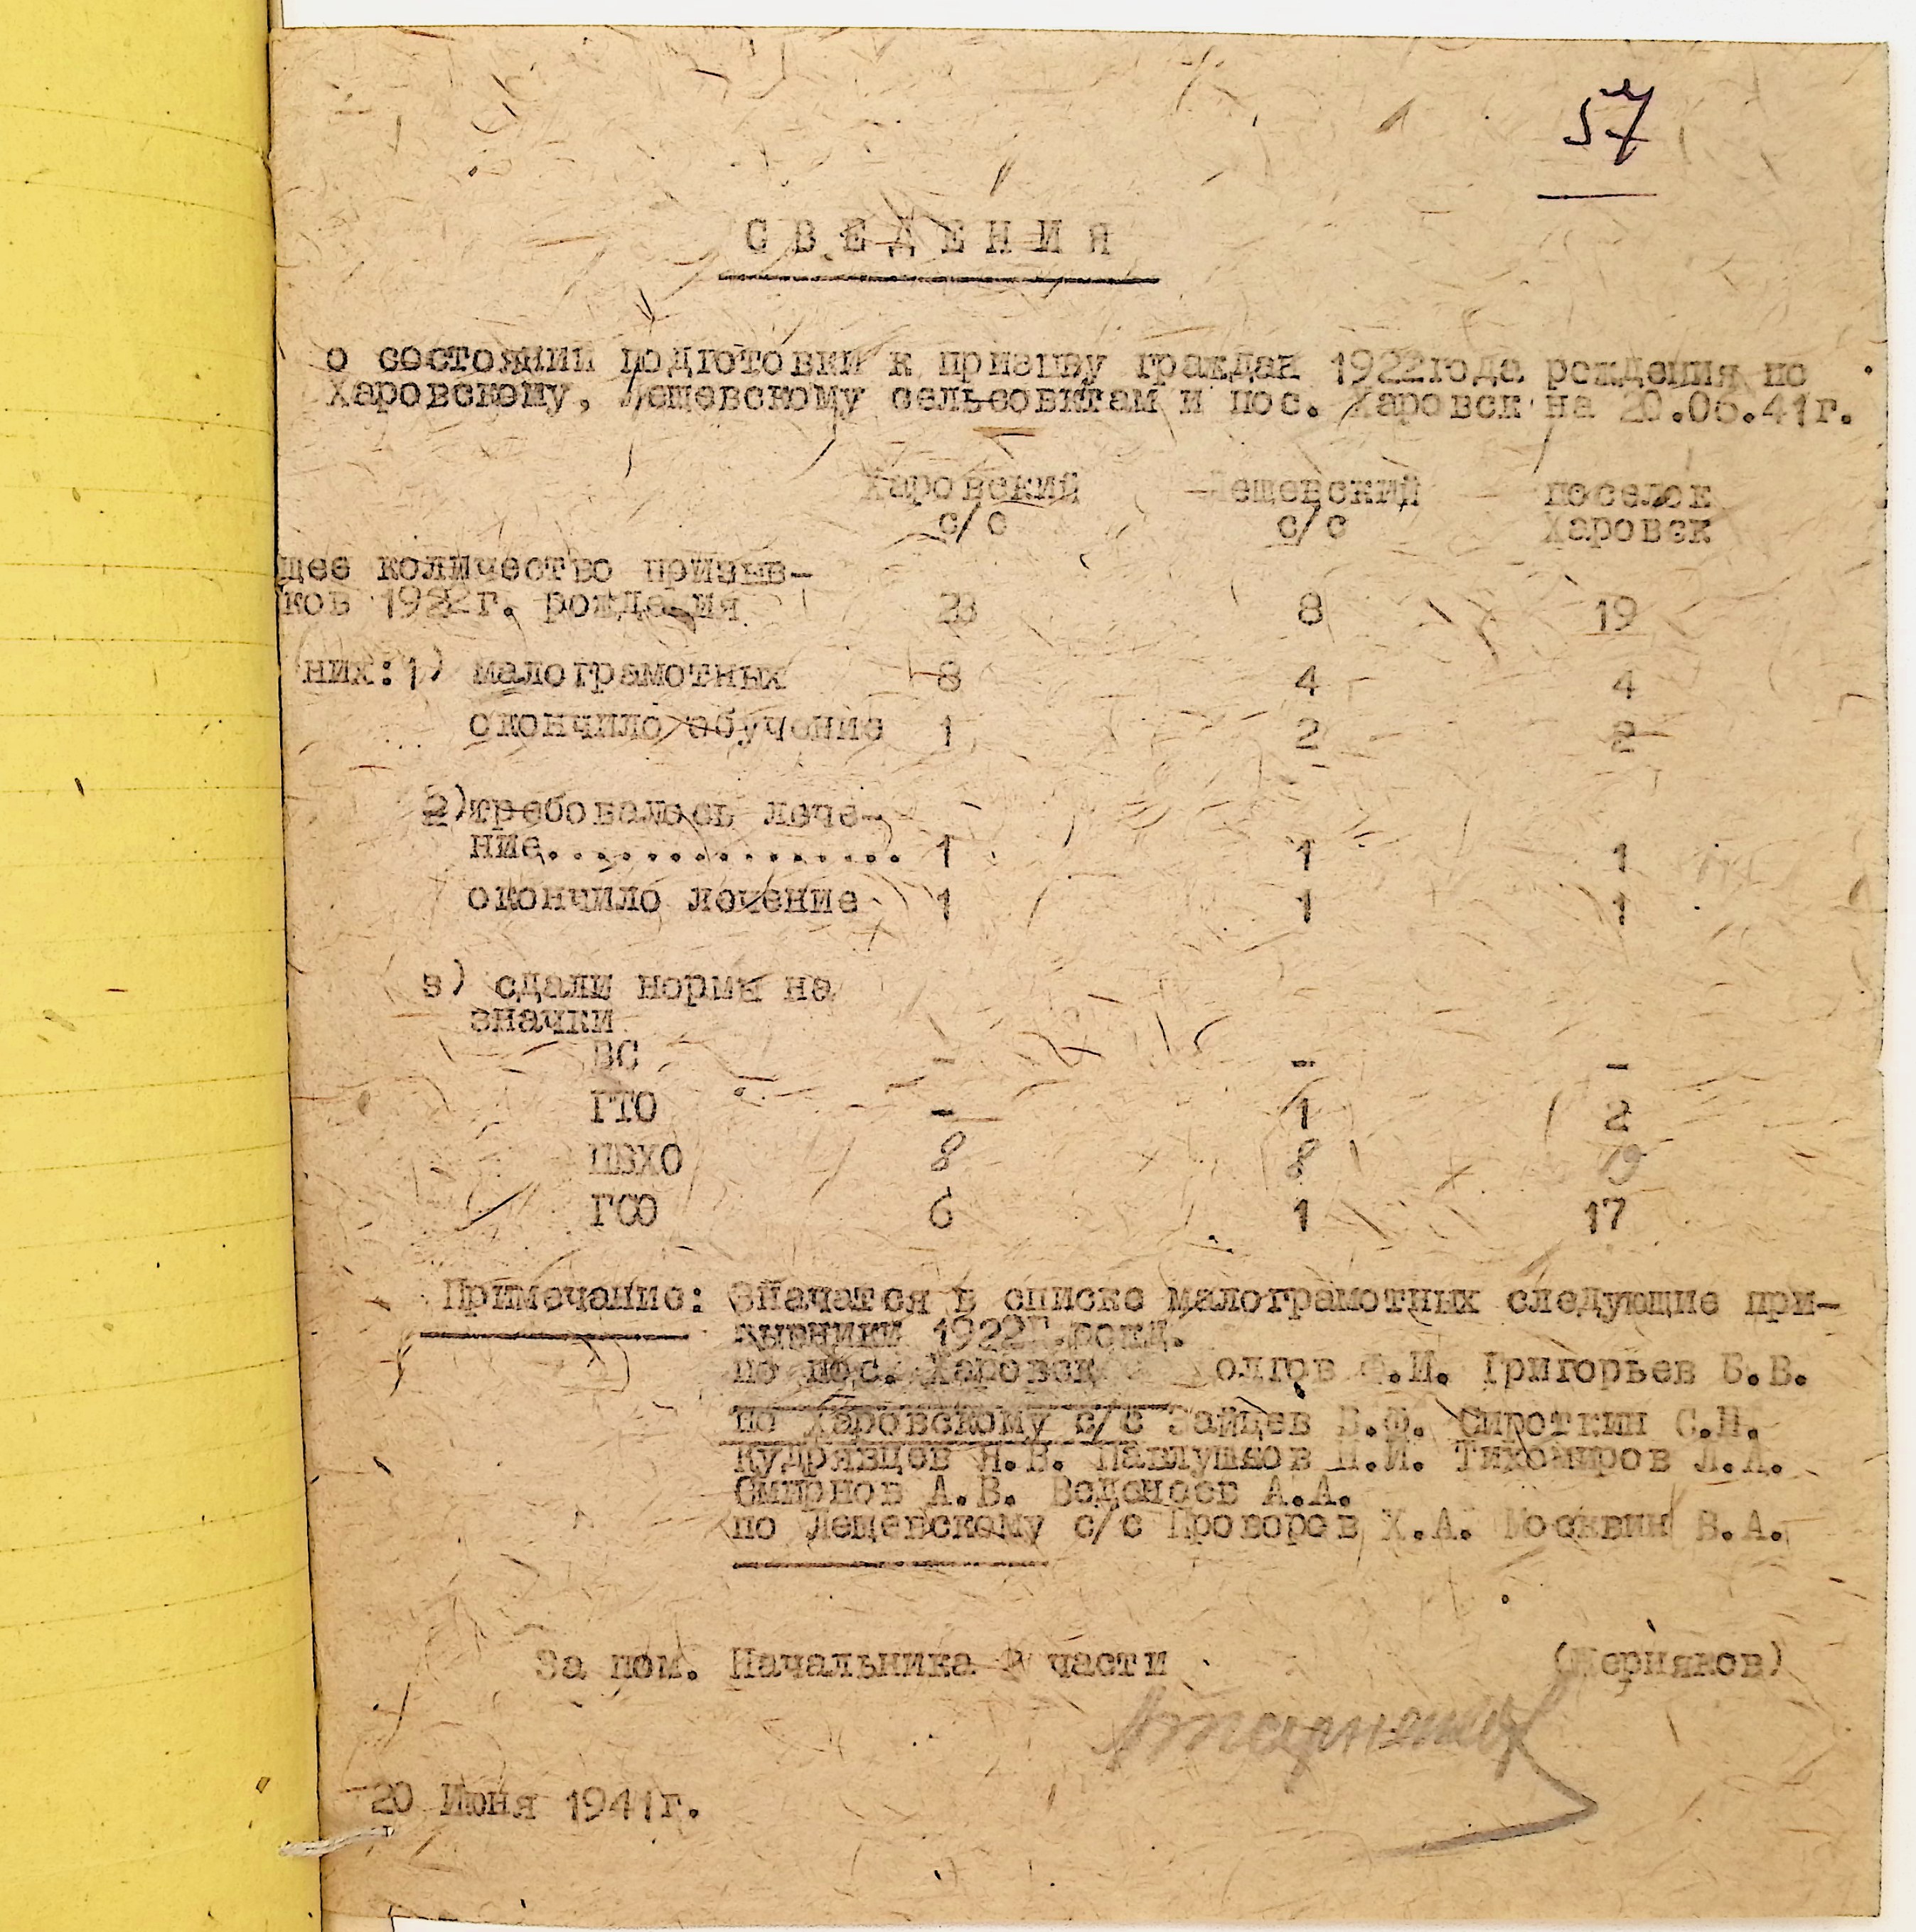 57
СВЕДЕНИЯ
о состоянии подготовки к призыву граждан 1922года рождения по
Харовскому, Лещевскому сельсоветам и пос. Харовск на 20.06.41г.
Харовский Лещевский поселок
с/с с/с Харовск
щее количество призыв-
ков 1922г. рождения 8 19
них:1) малограмотных 8 4 4
окончило обучение 1 2 2
2)требовалось лече-
ние............... 1 1 1
окончило лечение 1 1 1
3) сдали нормы на
значки
ВС - - -
ГТО - 1 2
ПВХО 8 8 19
ГСО 6 1 17
Примечание: Значатся в списке малограмотных следующие при-
зывники 1922г.рожд.
по пос. Харовск олгов Ф.И. Григорьев Б.В.
по Харовскому с/с Зайцев В.Ф. Сироткин С.Н.
Кудрявцев Н.В. Павлушков Н.И. Тихомиров Л.А.
Смирнов А.В. Веденеев А.А.
по Лещевскому с/с Проворов Х.А. Москвин В.А.
За пом. Начальника части (Шерняков)
20 Июня 1941г.